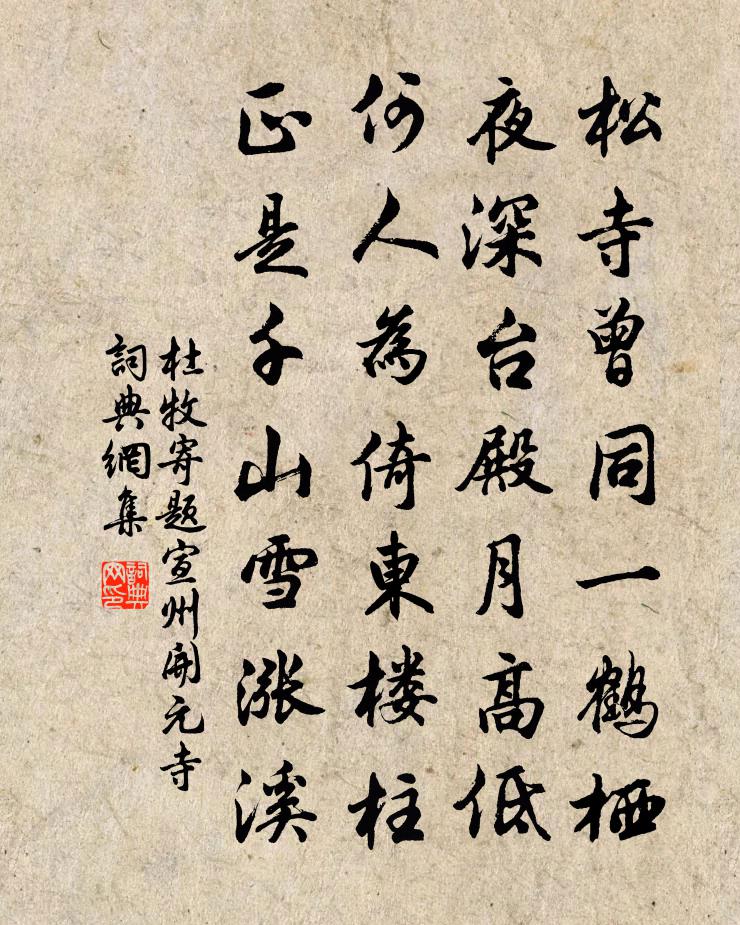 松寺曾同一鶴栖
夜深台殿月高低
何人為倚東楼柱
正是千山雪漲溪
杜牧寄題宣州開元寺
詞典網集
詞典网印